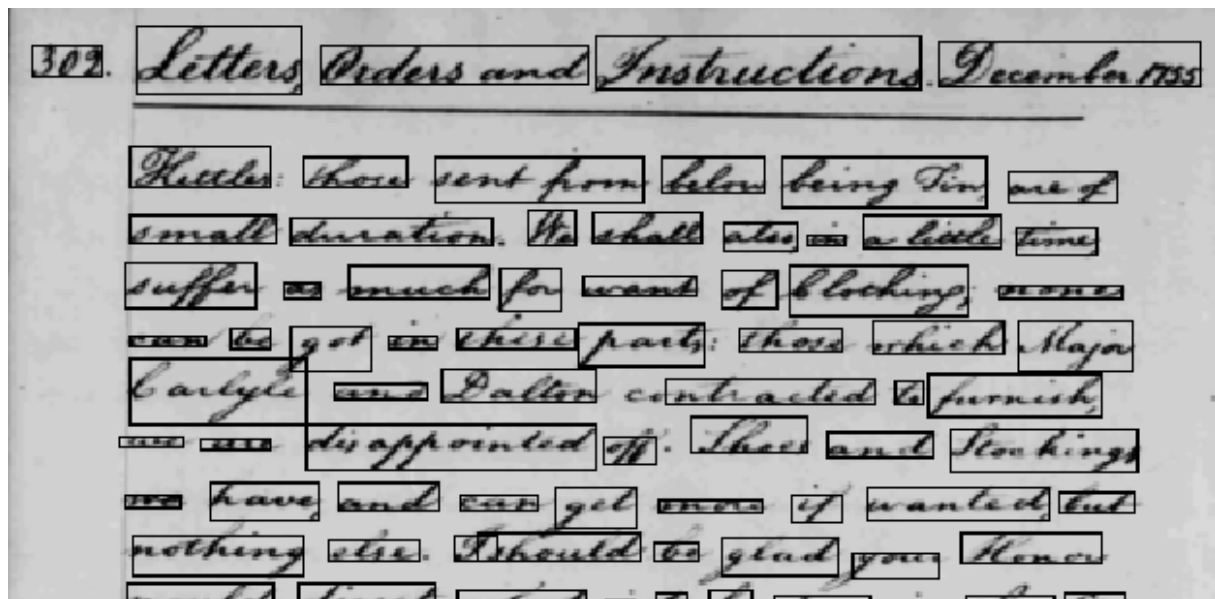 302. Letters, Orders and Instructions. December 1755
Kettles: those sent from below being Tin, are of
small duration. We shall also, in a little time,
suffer as much for want of Clothing; none
can be got in these parts: those which Major
Carlyle and Dalton contracted to furnish,
we are disappointed off. Shoes and Stockings
we have, and can get more if wanted, but
nothing else. I should be glad your Honor
would direct